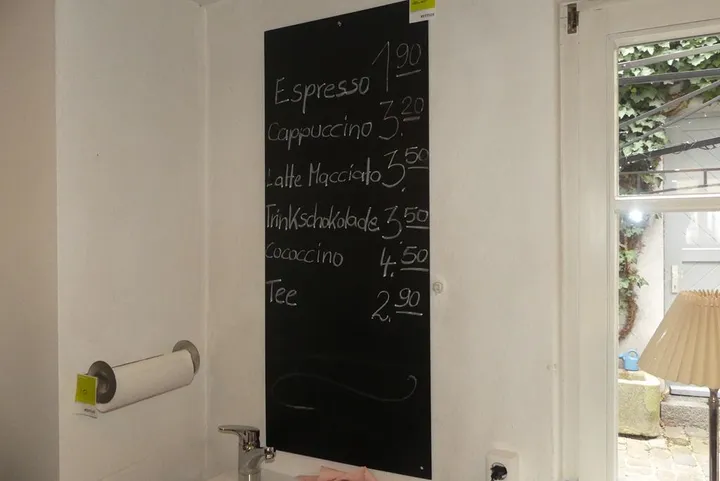 Espresso 1.90
Cappuccino 3.20
Latte Macciato 3.50
Trinkschokolade 3.50
Cococcino 4.50
Tee 2.90